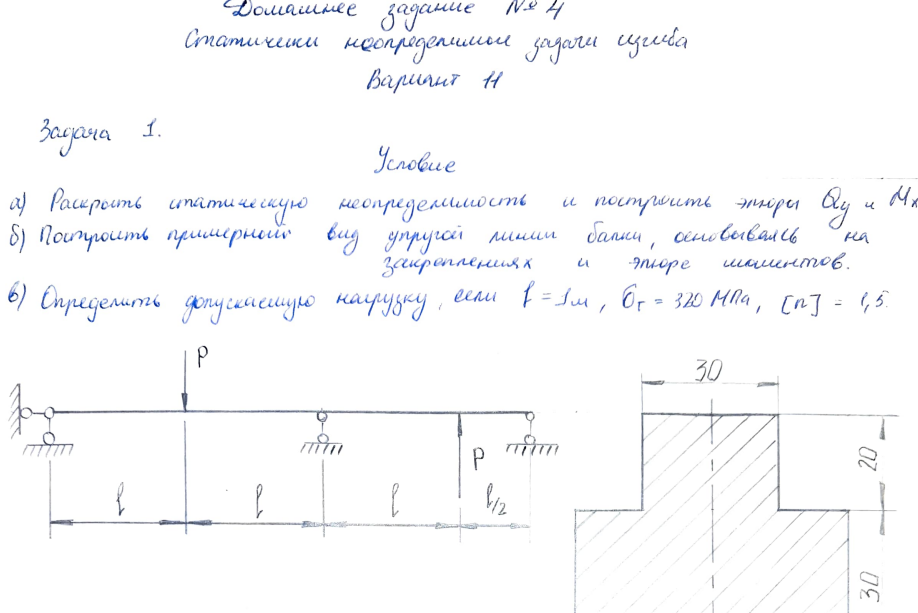 Домашнее задание № 4
Статически неопределимые задачи изгиба
Вариант 11
Задача 1.
Условие
а) Раскрыть статическую неопределимость и построить эпюры Qy и Mx
б) Построить примерный вид упругой линии балки, основываясь на
закреплениях и эпюре моментов.
в) Определить допускаемую нагрузку, если l = 1м, σт = 320 МПа, [n] = 1,5.
P
30
P
20
l
l
l
l/2
30